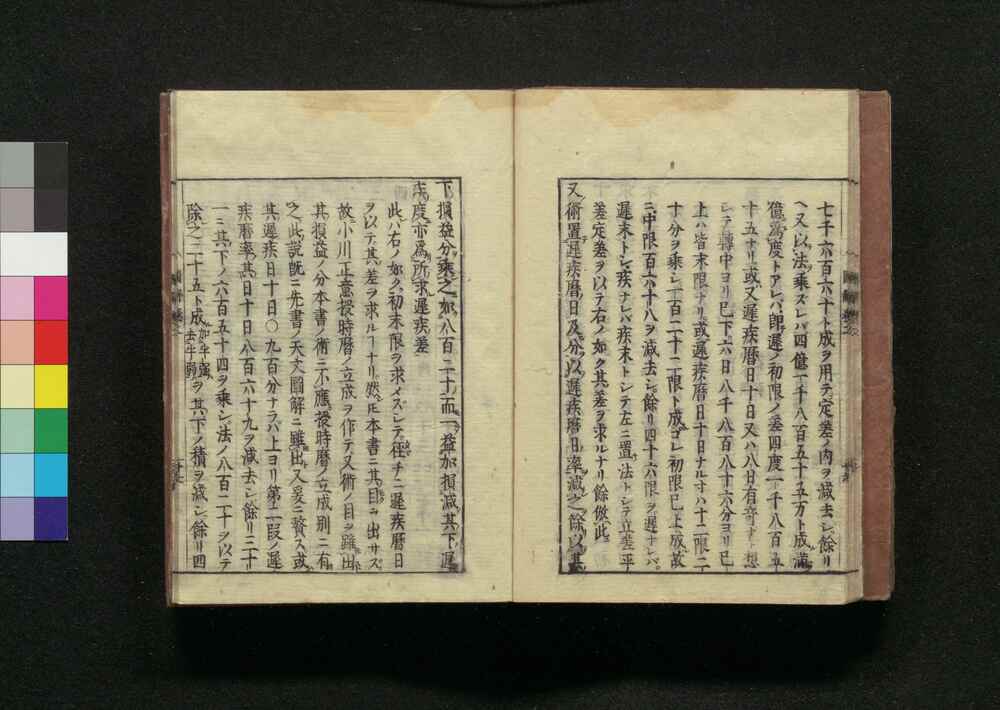 七千六百六十ト成ヲ用テ定差ノ内ヲ減去シ餘リ
ヘ又以法乗ズレバ四億一千八百五十五万ト成満
億為度トアレバ即遅ノ初限ノ差四度一千八百五
十五ナリ或又遅疾暦日十日又八廿有奇ナレ想
シテ轉中ヨリ已下六日八千八百八十六分ヨリ已
上ハ皆末限ナリ或遅疾暦日十日ナル寸ハ十二限二
十分ヲ乗シ一百二十二限ト成コレ初限已上成故
ニ中限百六十八ヲ減去シ餘リ四十六限ヲ遅ナレバ
遅末トシ疾ナレバ疾末トシテ左ニ置法トシテ立差平
差定差ヲ以テ右ノ如ク其差ヲ求ルナリ餘倣此
又術置遅疾暦日及分以遅疾暦日率減之餘以其
下損益分乗之如八百二十而一益加損減其下遅
疾度亦為所求遅疾差
此ハ右ノ如ク初末限ヲ求メズシテ径チニ遅疾暦日
ヲ以テ其差ヲ求ルナリ然𪜈本書ニ其目ヲ出サズ
故小川正意授時暦ノ立成ヲ作テ又術ノ目ヲ雖出
其損益ノ分本書ノ術ニ不應授時暦ノ立成別ニ有
之此説既ニ先書ノ天文圖解ニ雖出又爰ニ贅ス或
其遅疾日十日〇九百分ナラバ上ヨリ第二段ノ遅
疾暦率其日十日八百六十九ヲ減去シ餘リ三十
一ニ其下ノ六百五十四ヲ乗シ法ノ八百二十ヲ以テ
除之二十五ト成如半強去半弱ヲ其下ノ積ヲ減シ餘リ四